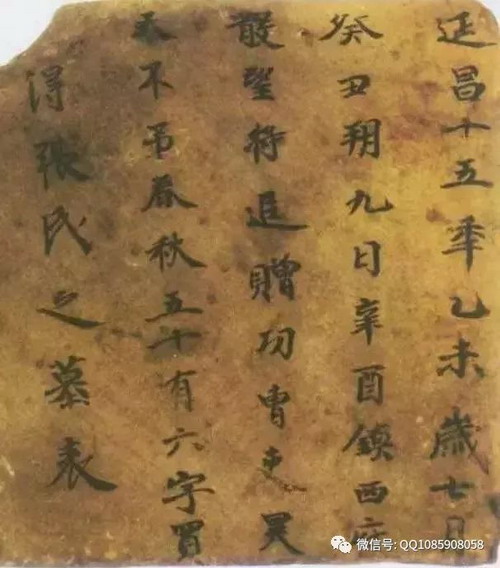 延昌十五年乙未歲七月
癸丑朔九日辛酉鎮西府
散望將追贈功曹吏昊
天不弔春秋五十有六字買
得張氏之墓表
微信号: QQ1085908058